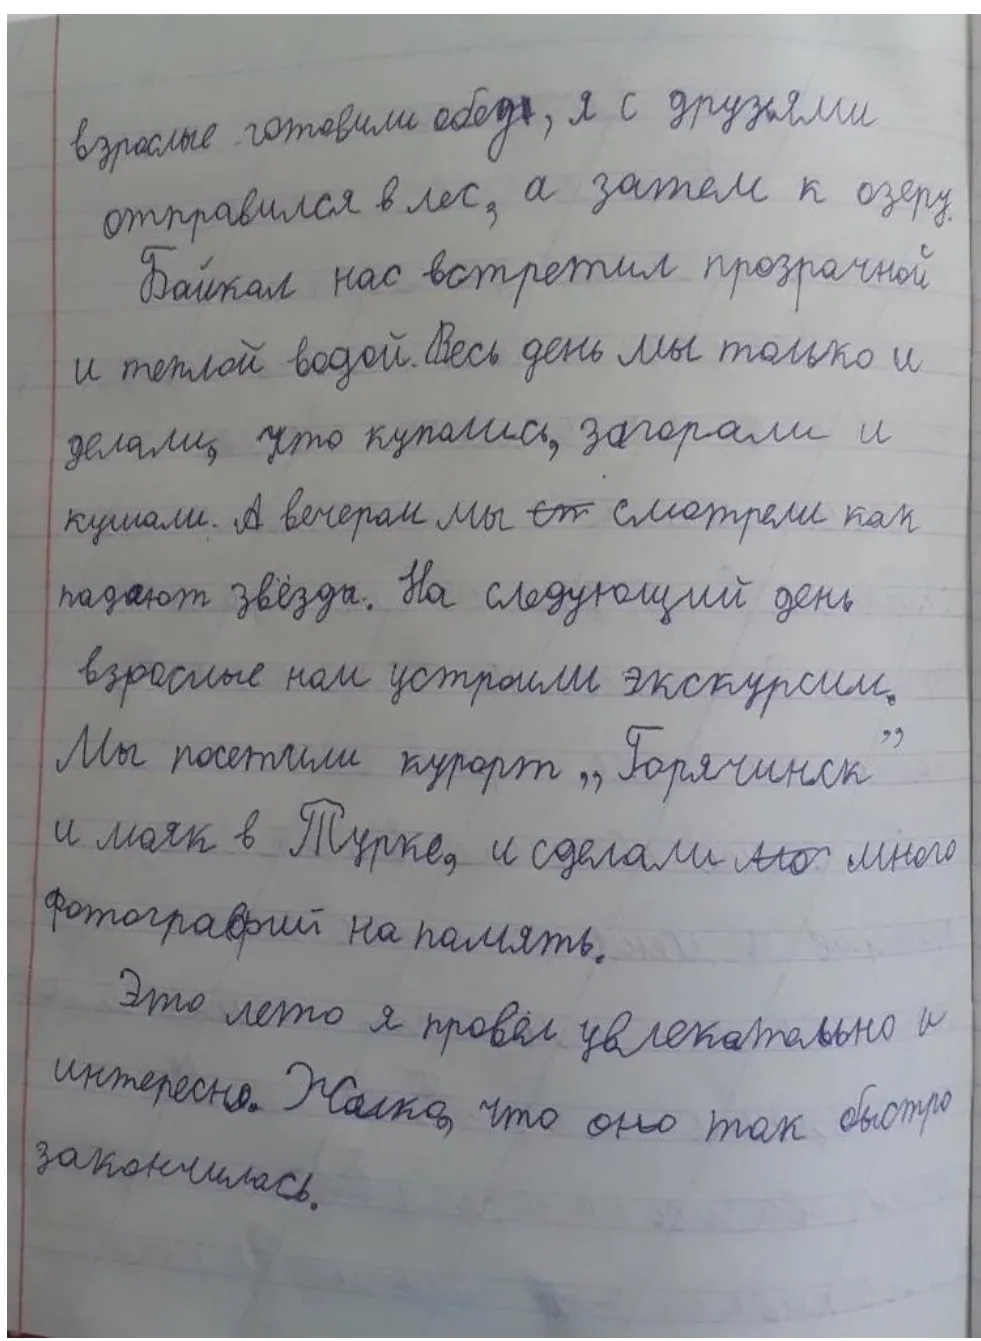 взрослые готовили обед, я с друзьями
отправился в лес, а затем к озеру.
Байкал нас встретил прозрачной
и теплой водой. Весь день мы только и
делали, что купались, загорали и
кушали. А вечерам мы ст смотрели как
падают звёзды. На следующий день
взрослые нам устроили экскурсии.
Мы посетили курорт „Горячинск”
и маяк в Турке, и сделали мо много
фотографий на память.
Это лето я провёл увлекательно и
интересно. Жалко, что оно так быстро
закончилась.